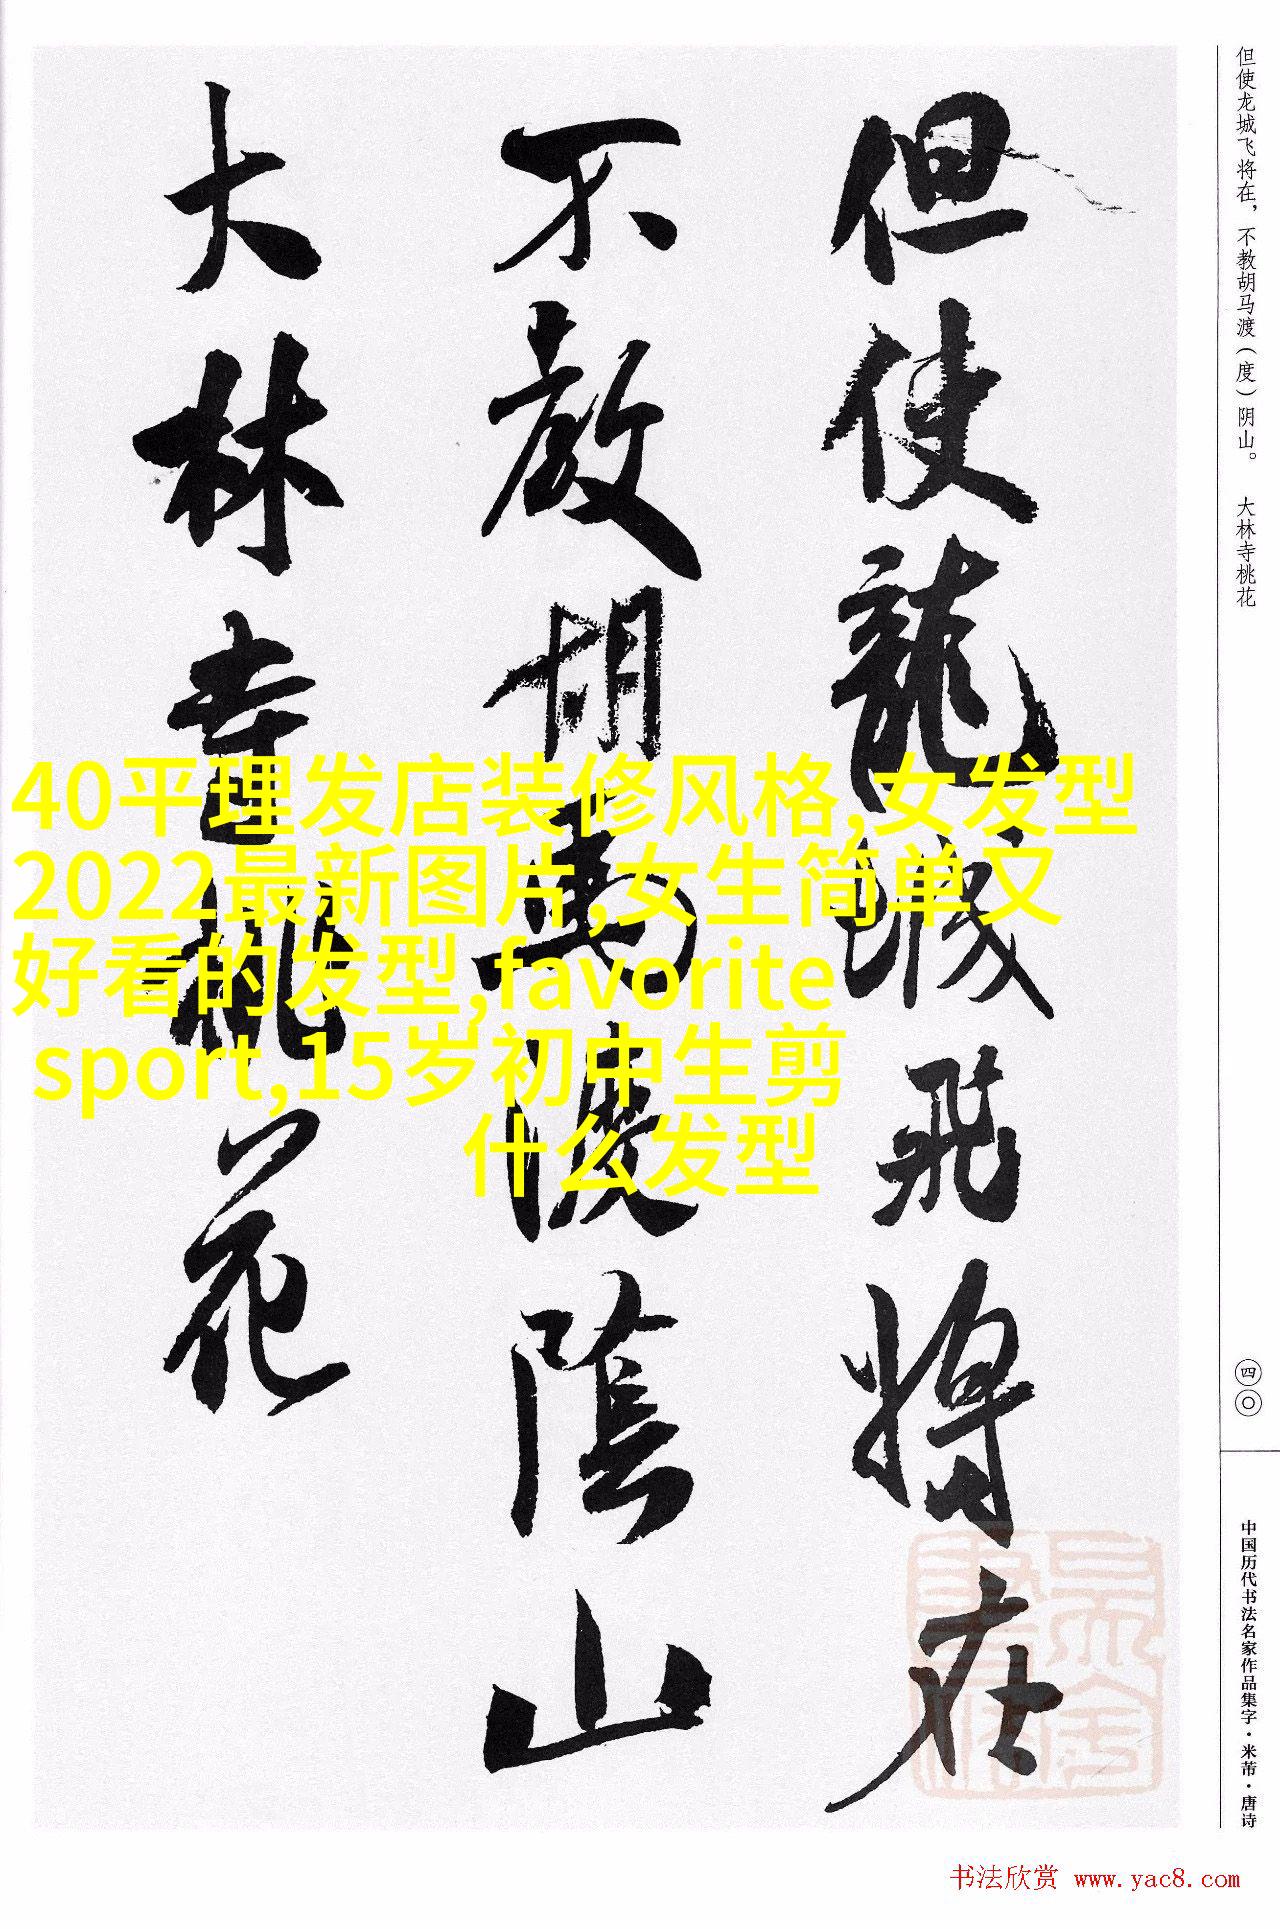 但使龙城飞将在，不教胡马渡（度）阴山。 大林寺桃花
但使龍城飛將在
不教胡馬渡陰山
大林寺桃花
40平理发店装修风格,女发型
2022最新图片,女生简单又
好看的发型,favorite
sport,15岁初中生剪
什么发型
四〇
中国历代书法名家作品集字·米芾·唐诗
书法欣赏 www.yac8.com